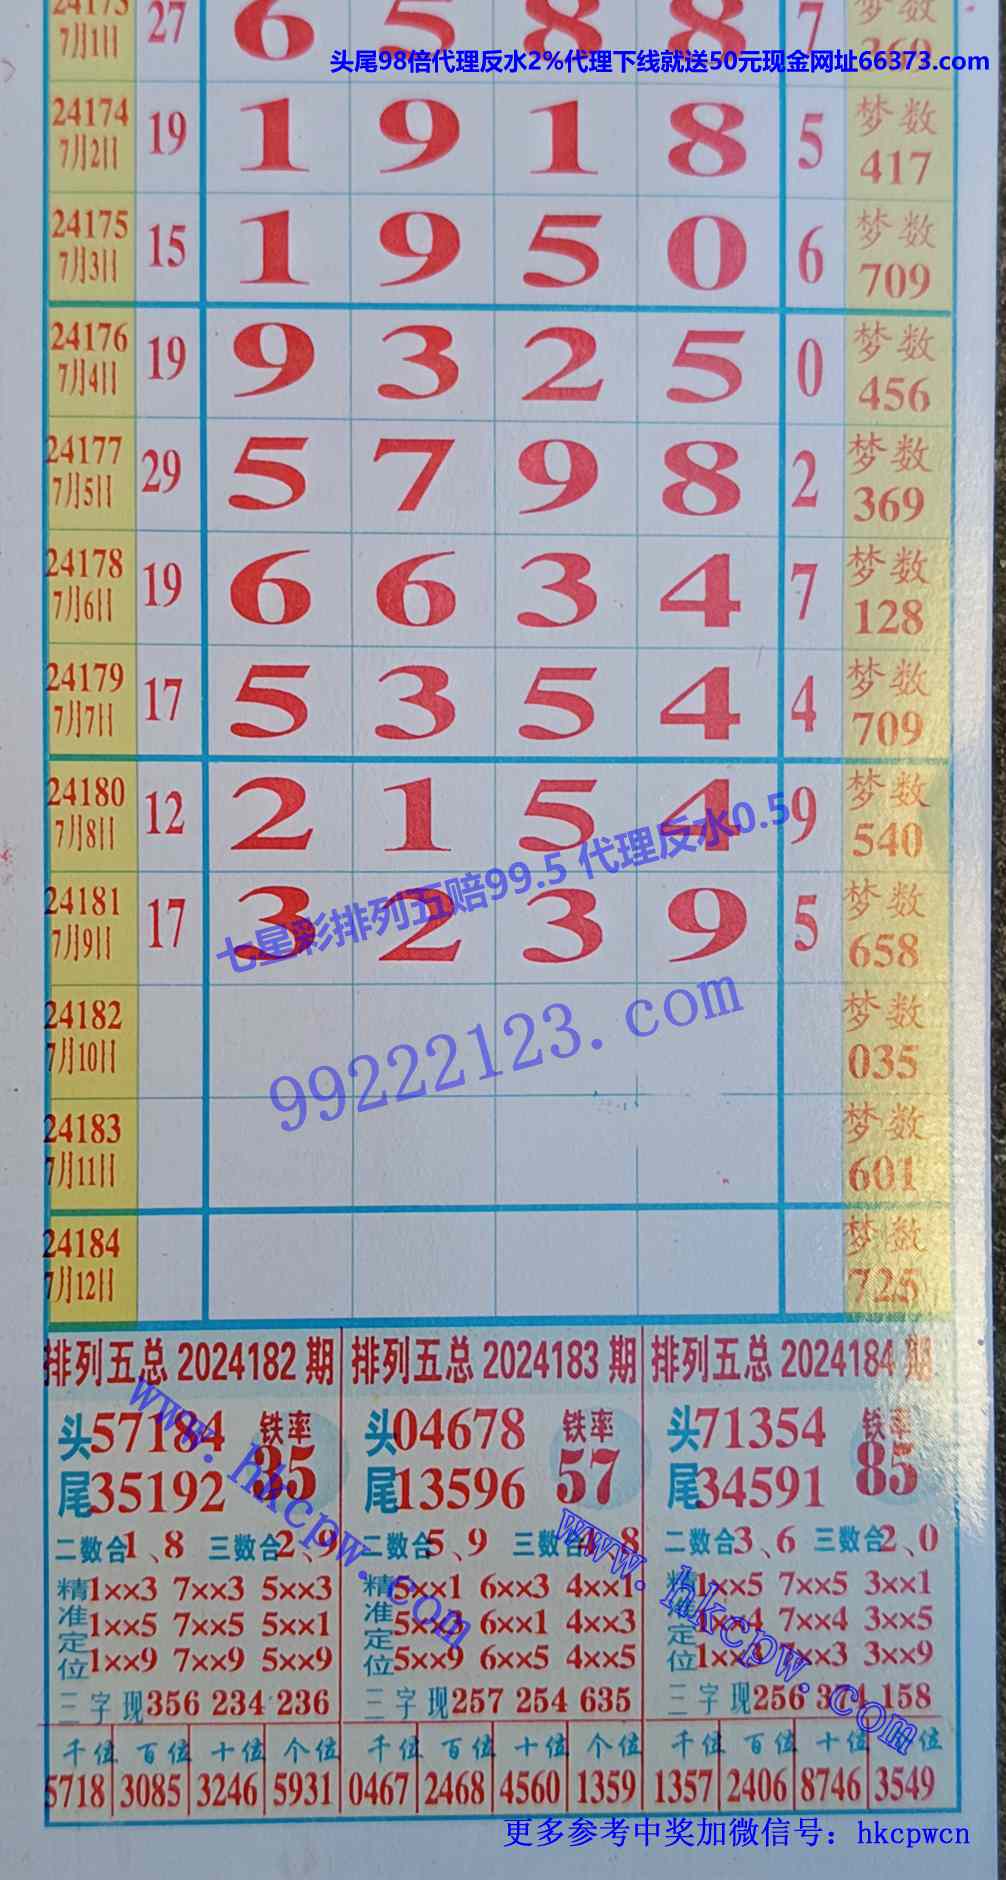 24173 27 6 5 8 8 7 梦数
7月1日 369
头尾98倍代理反水2%代理下线就送50元现金网址66373.com
24174 19 1 9 1 8 5 梦数
7月2日 417
24175 15 1 9 5 0 6 梦数
7月3日 709
24176 19 9 3 2 5 0 梦数
7月4日 456
24177 29 5 7 9 8 2 梦数
7月5日 369
24178 19 6 6 3 4 7 梦数
7月6日 128
24179 17 5 3 5 4 4 梦数
7月7日 709
24180 12 2 1 5 4 9 梦数
7月8日 540
七星彩排列五赔99.5 代理反水0.5
24181 17 3 2 3 9 5 梦数
7月9日 658
99222123.com
24182 梦数
7月10日 035
24183 梦数
7月11日 601
24184 梦数
7月12日 725
排列五总 2024182 期 排列五总 2024183 期 排列五总 2024184 期
头57184 铁率 头04678 铁率 头71354 铁率
尾35192 35 尾13596 57 尾34591 85
www.hkcpw.com
www.hkcpw.com
二数合1、8 三数合2、9 二数合5、9 三数合4、8 二数合3、6 三数合2、0
精准定位 精准定位 精准定位
1××3 7××3 5××3 5××1 6××3 4××1 1××5 7××5 3××1
1××5 7××5 5××1 5×× 6××1 4××3 1××4 7××4 3××5
1××9 7××9 5××9 5××9 6××5 4××5 1×× 7××3 3××9
三字现356 234 236 三字现257 254 635 三字现256 374 158
千位 百位 十位 个位 千位 百位 十位 个位 千位 百位 十位 个位
5718 3085 3246 5931 0467 2468 4560 1359 1357 2406 8746 3549
更多参考中奖加微信号：hkcpwcn